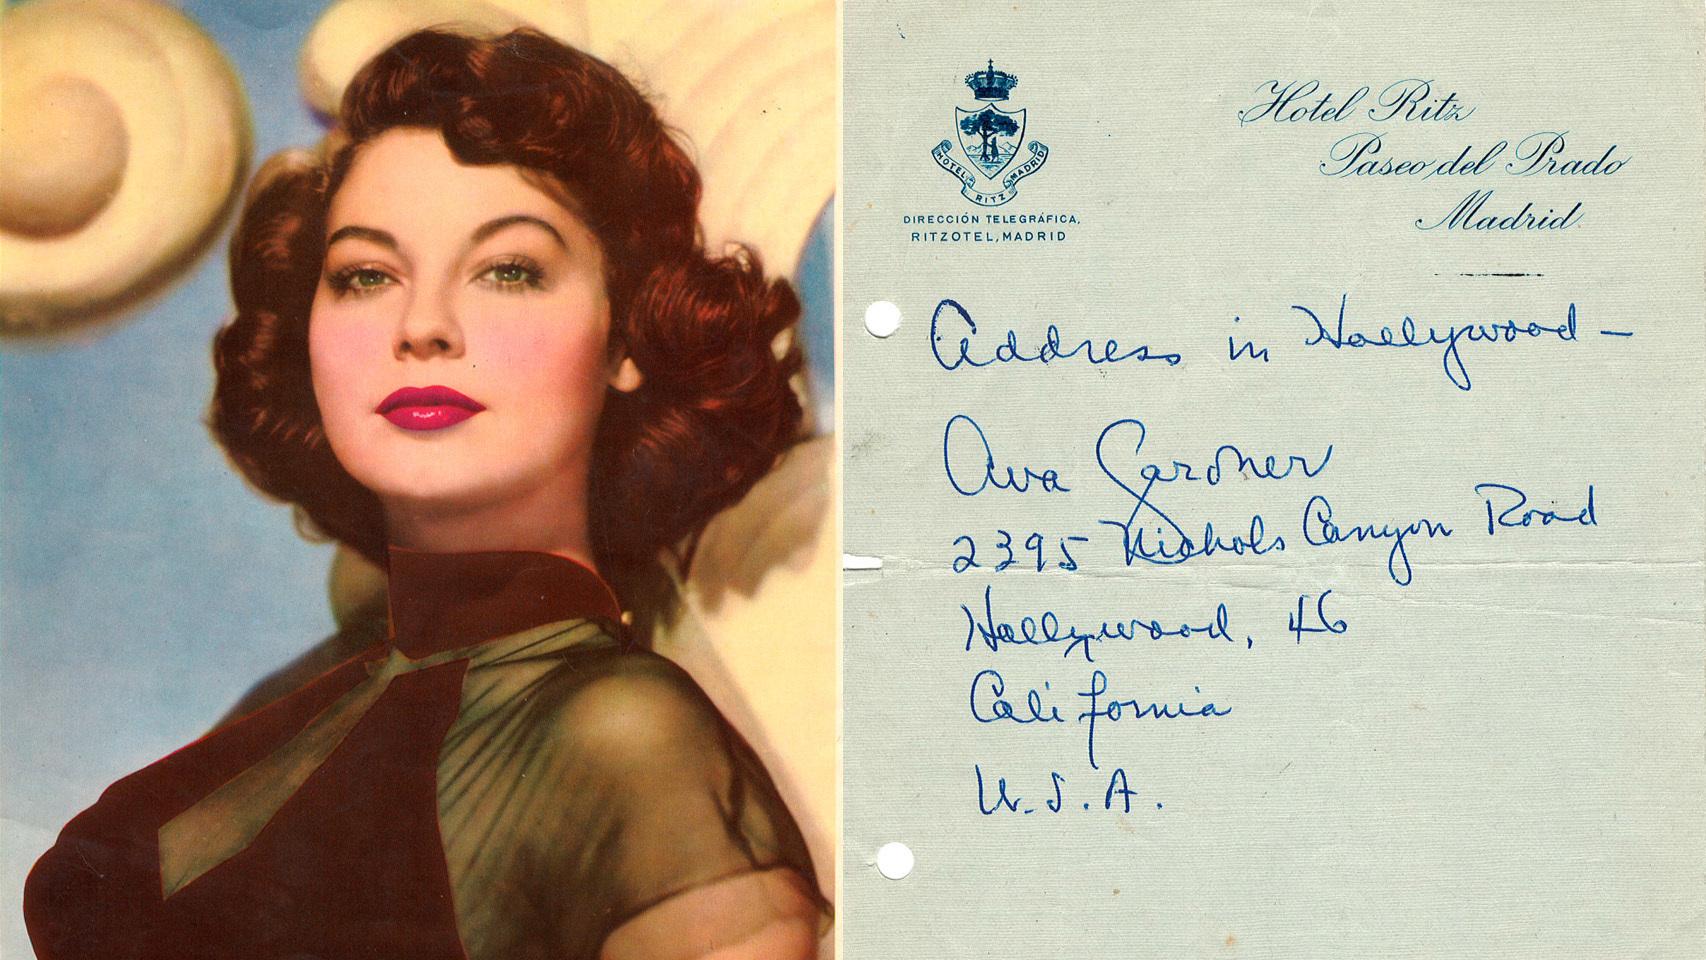 HOTEL RITZ MADRID
DIRECCIÓN TELEGRÁFICA,
RITZOTEL, MADRID
Hotel Ritz
Paseo del Prado
Madrid
Address in Hollywood —
Ava Gardner
2395 Nichols Canyon Road
Hollywood, 46
California
U.S.A.